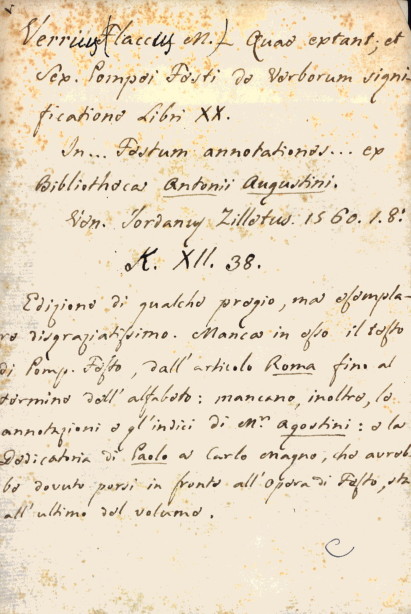 Verrius Flaccus M.) Quae extant, et
Sex. Pompei Festi de Verborum signi-
ficatione Libri XX.
In... Festum annotationes... ex
Bibliotheca Antonii Augustini.
Ven. Jordanus Zilletus. 1560. 1. 8.°
K. XII. 38.
Edizione di qualche pregio, ma esempla-
re disgraziatissimo. Manca in esso il testo
di Pomp. Festo, dall'articolo Roma fino al
termine dell'alfabeto: mancano, inoltre, le
annotazioni e gl'indici di M.r Agostini: e la
Dedicatoria di Paolo a Carlo magno, che avreb-
be dovuto porsi in fronte all'Opera di Festo, sta
all'ultimo del volume.
C